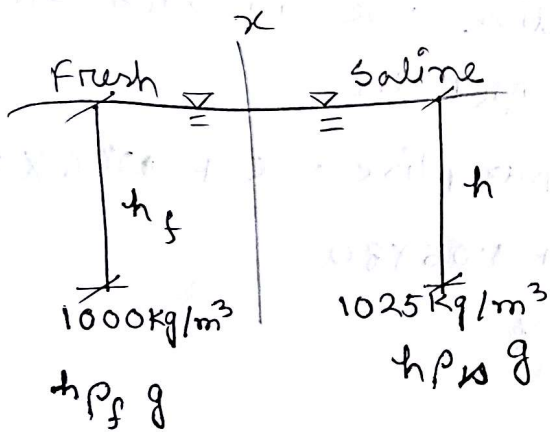 x
Fresh
Saline
h_f
h
1000kg/m³
1025Kg/m³
hρ_f g
hρ_s g